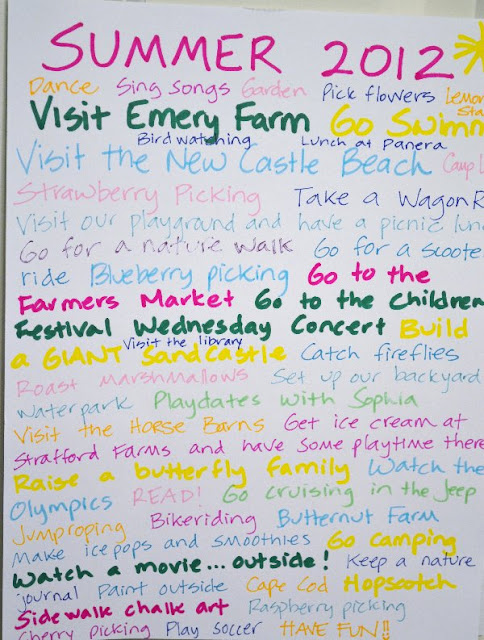 SUMMER 2012
Dance Sing Songs Garden Pick flowers Lemon
Sta
Visit Emery Farm Go Swimm
Bird watching Lunch at Panera
Visit the New Castle Beach Camp
Strawberry Picking Take a Wagon R
Visit our playground and have a picnic lun
Go for a nature walk Go for a scoote
ride Blueberry picking Go to the
Farmers Market Go to the Children
Festival Wednesday Concert Build
Visit the library
a GIANT Sandcastle Catch fireflies
Roast Marshmallows Set up our backyard
waterpark Playdates with Sophia
Visit the Horse Barns Get ice cream at
Strafford Farms and have some playtime there
Raise a butterfly family Watch the
Olympics READ! Go cruising in the Jeep
Jumproping Bikeriding Butternut Farm
Make icepops and smoothies Go camping
Watch a movie... outside! Keep a nature
journal Paint outside Cape Cod Hopscotch
Sidewalk chalk art Raspberry picking
Cherry picking Play soccer HAVE FUN!!